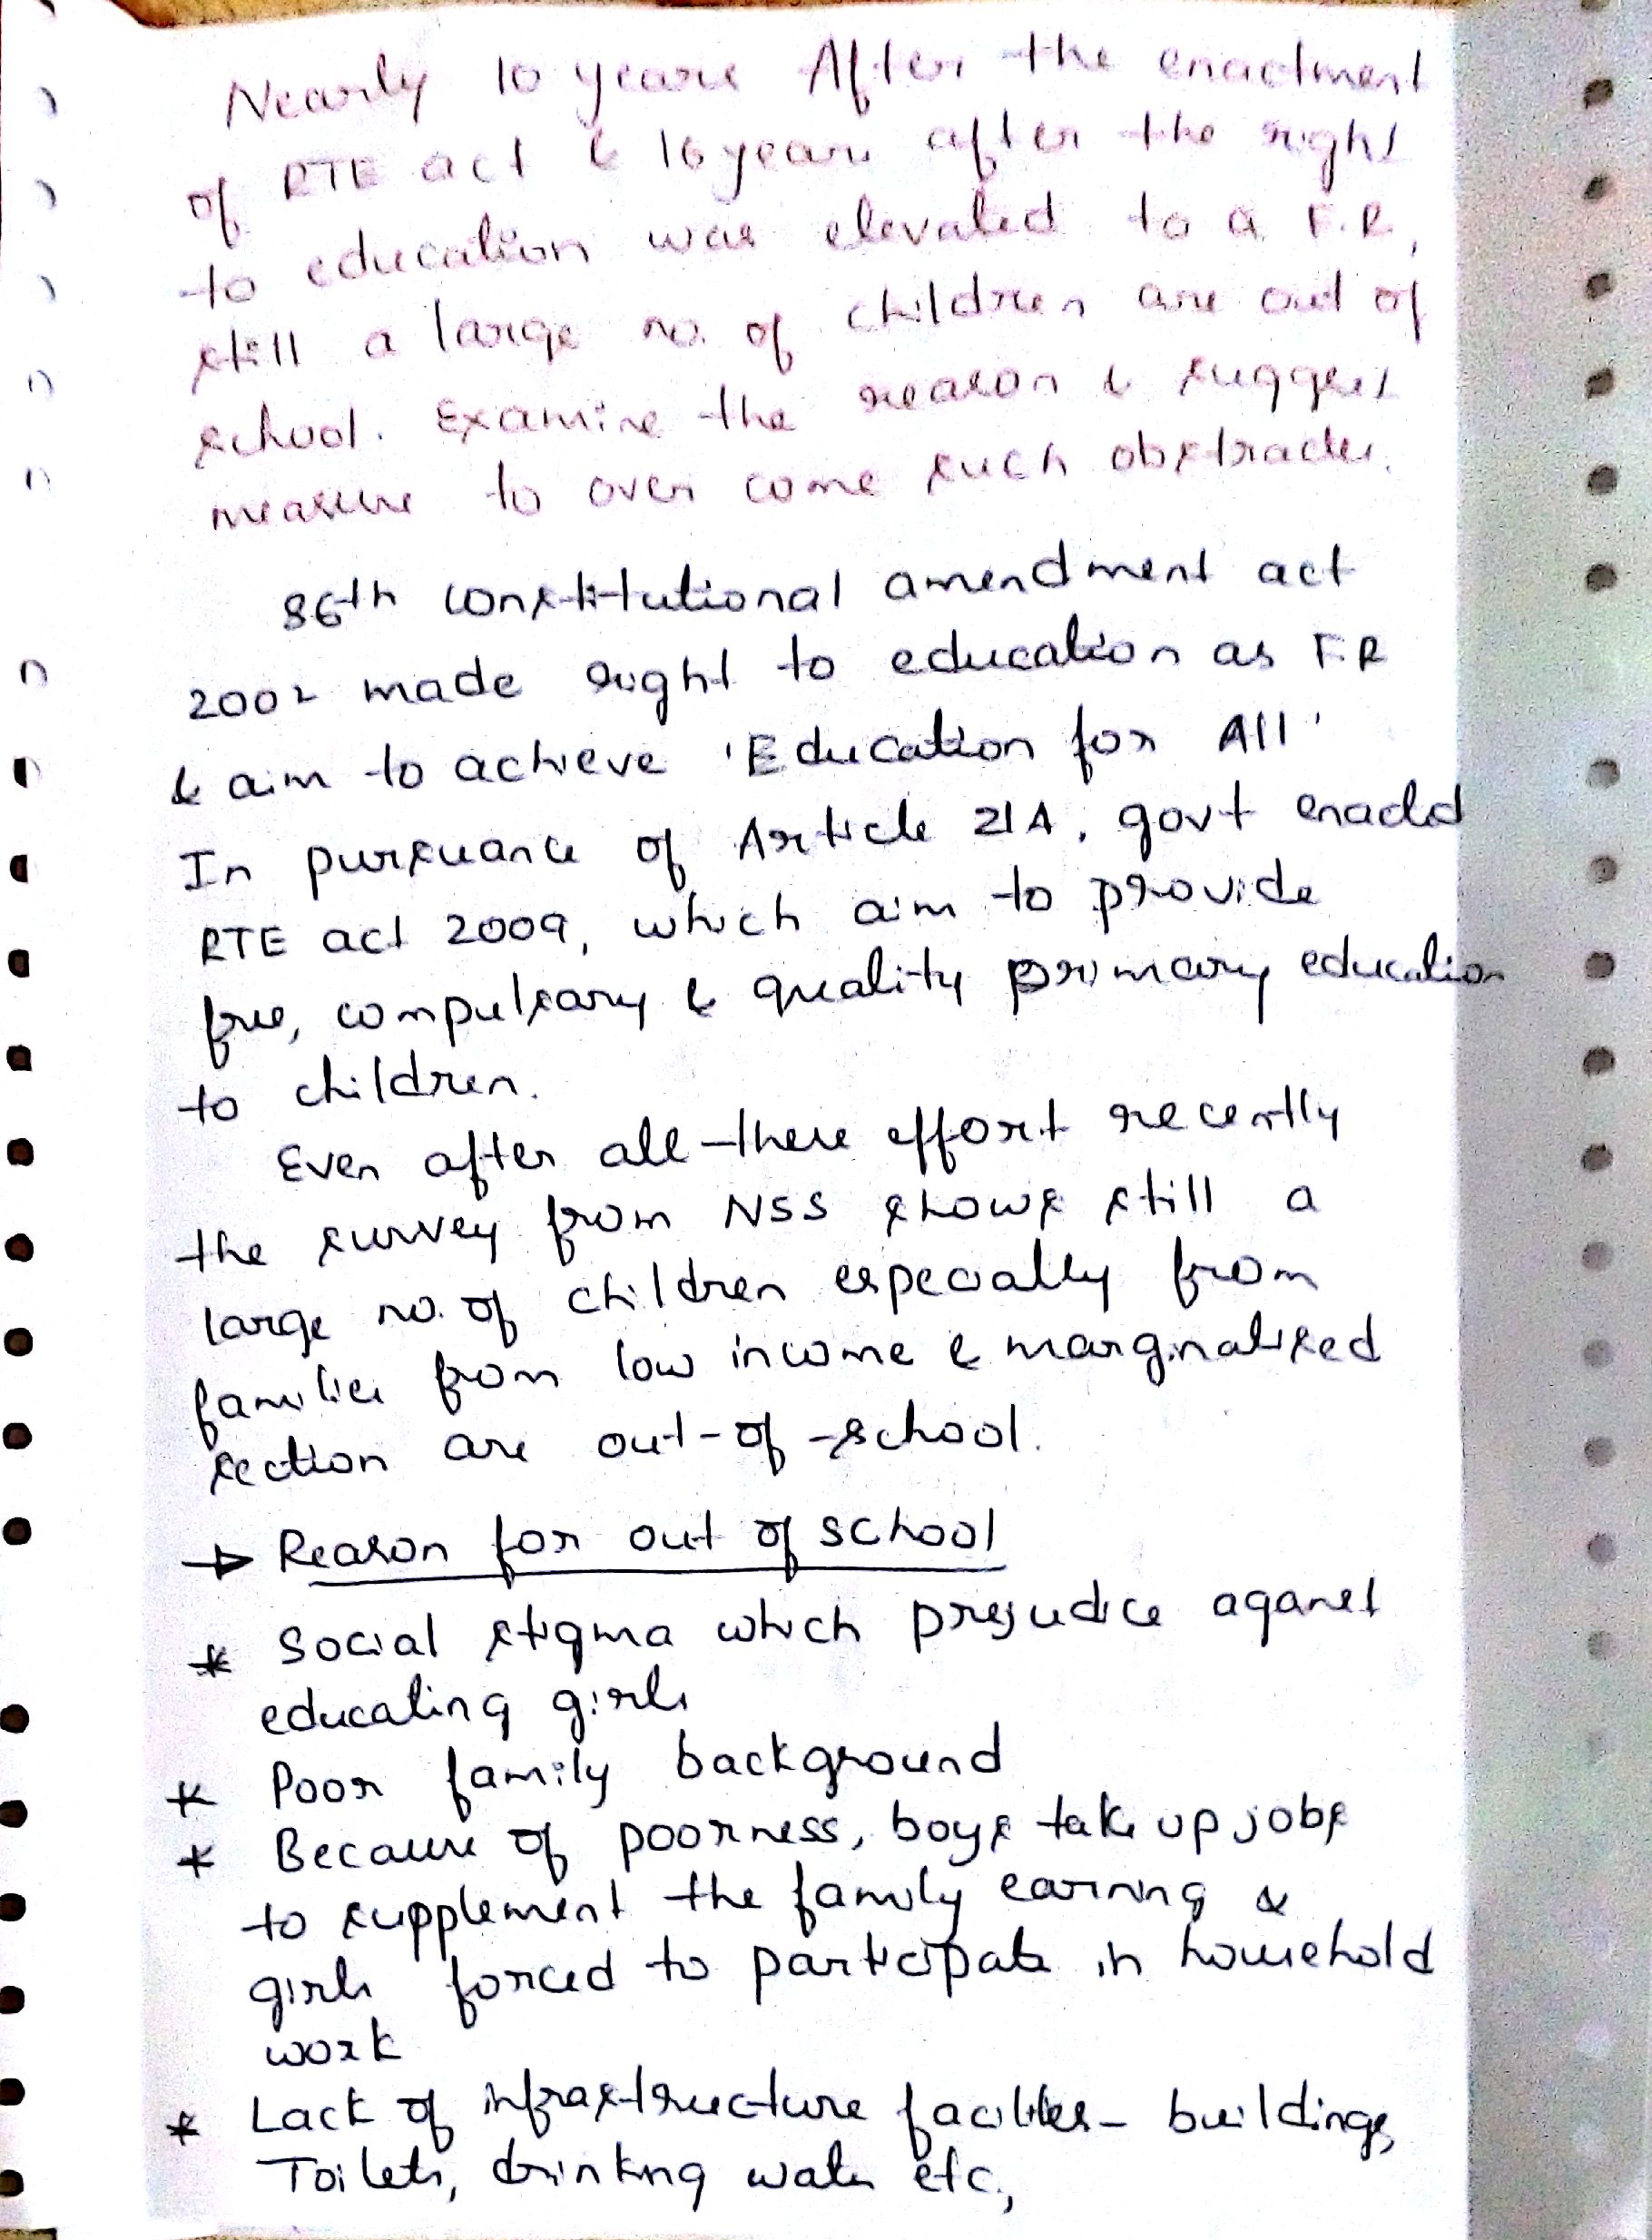 Nearly 10 years After the enactment
of RTE act & 16 years after the right
to education was elevated to a F.R,
still a large no. of children are out of
school. Examine the reason & suggest
measure to over come such obstracles.
86th constitutional amendment act
2002 made right to education as F.R
& aim to achieve 'Education for All'
In pursuance of Article 21A, govt enacted
RTE act 2009, which aim to provide
free, compulsary & quality primary education
to children.
Even after all these effort recently
the survey from NSS shows still a
large no. of children especially from
families from low income & marginalised
section are out-of-school.
→ Reason for out of school
* Social stigma which prejudice aganst
educating girls
* Poor family background
* Because of poorness, boys take up jobs
to supplement the family earning &
girls forced to participate in household
work
* Lack of infrastructure facilities - buildings,
Toilets, drinking water etc.,